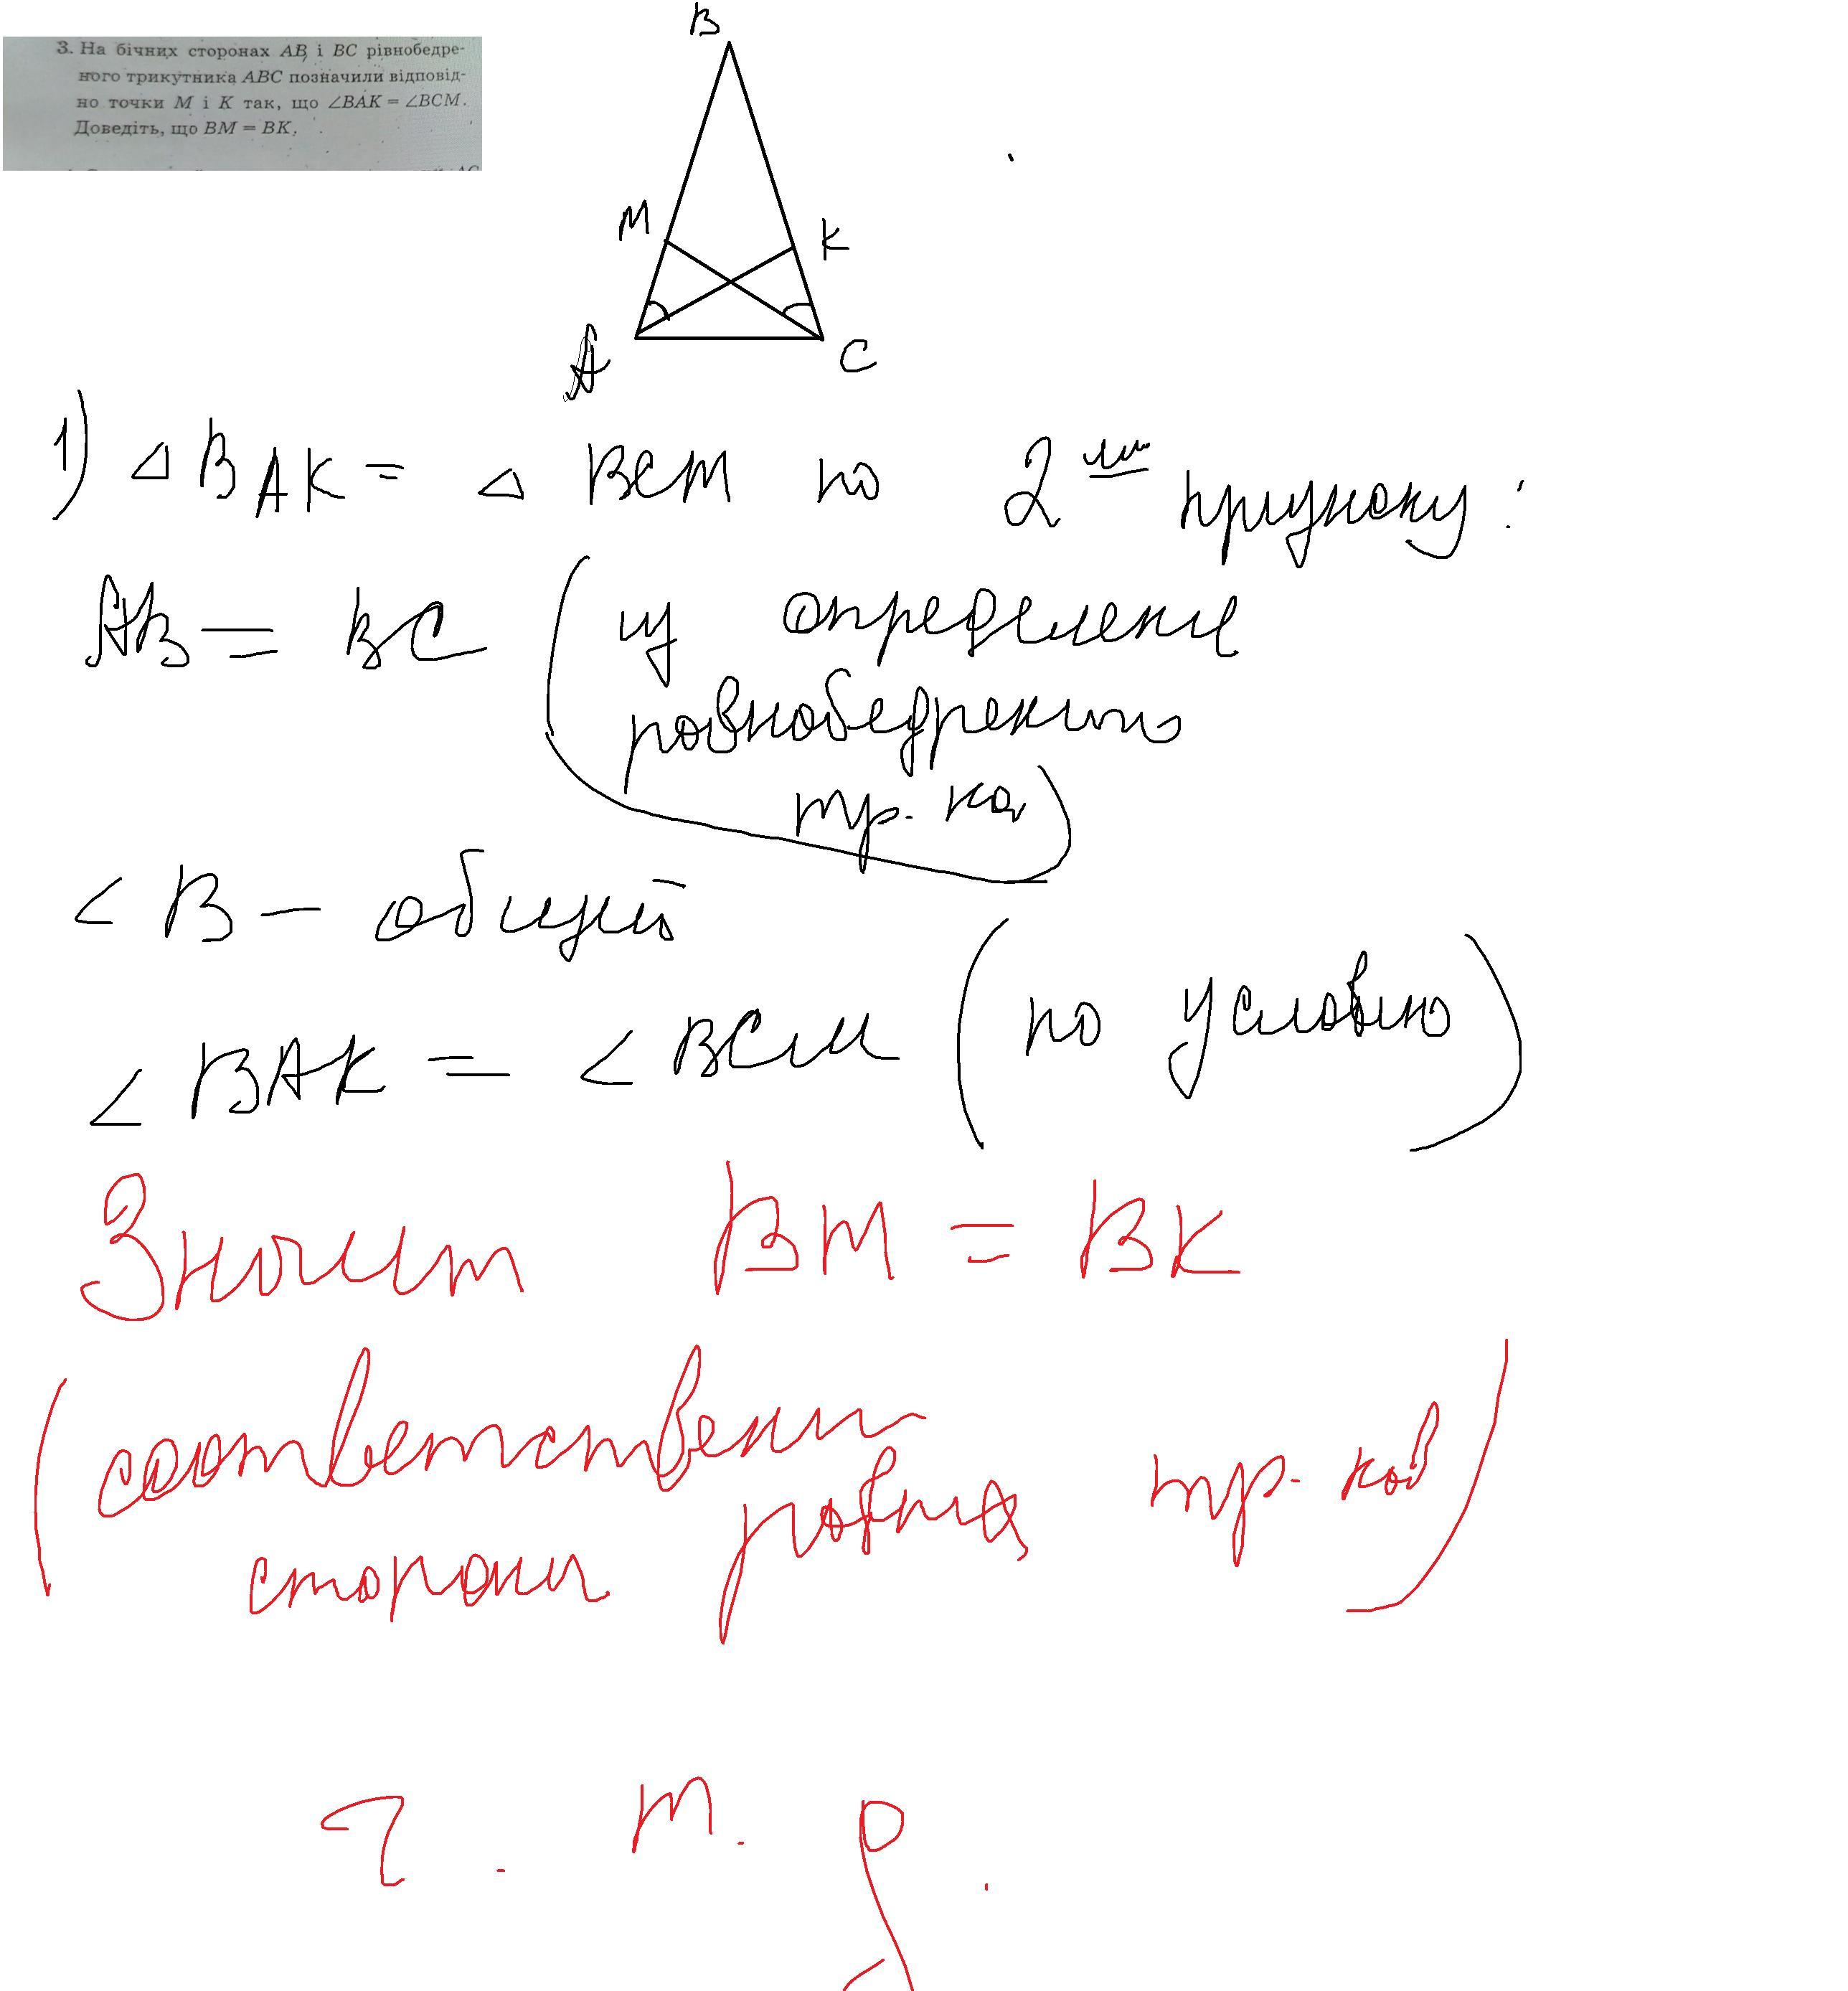 3. На бічних сторонах AB і BC рівнобедре-
ного трикутника ABC позначили відповід-
но точки M і K так, що ∠BAK = ∠BCM.
Доведіть, що BM = BK.
B
M
K
A
C
1) △ BAK = △ BCM по 2 признаку:
AB = BC (из определения
равнобедренного
тр. ка)
∠ B – общий
∠ BAK = ∠ BCM (по условию)
Значит BM = BK
(соответствен
стороны равных тр-ков)
ч. т. д.